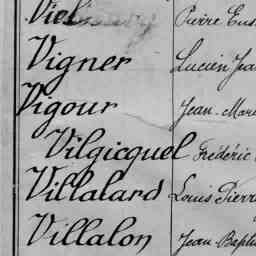 Viel Pierre
Vigner Lucien
Vigour Jean-Marie
Vilgicquel Frédéric
Villalard Louis Pierre
Villalon Jean-Baptis